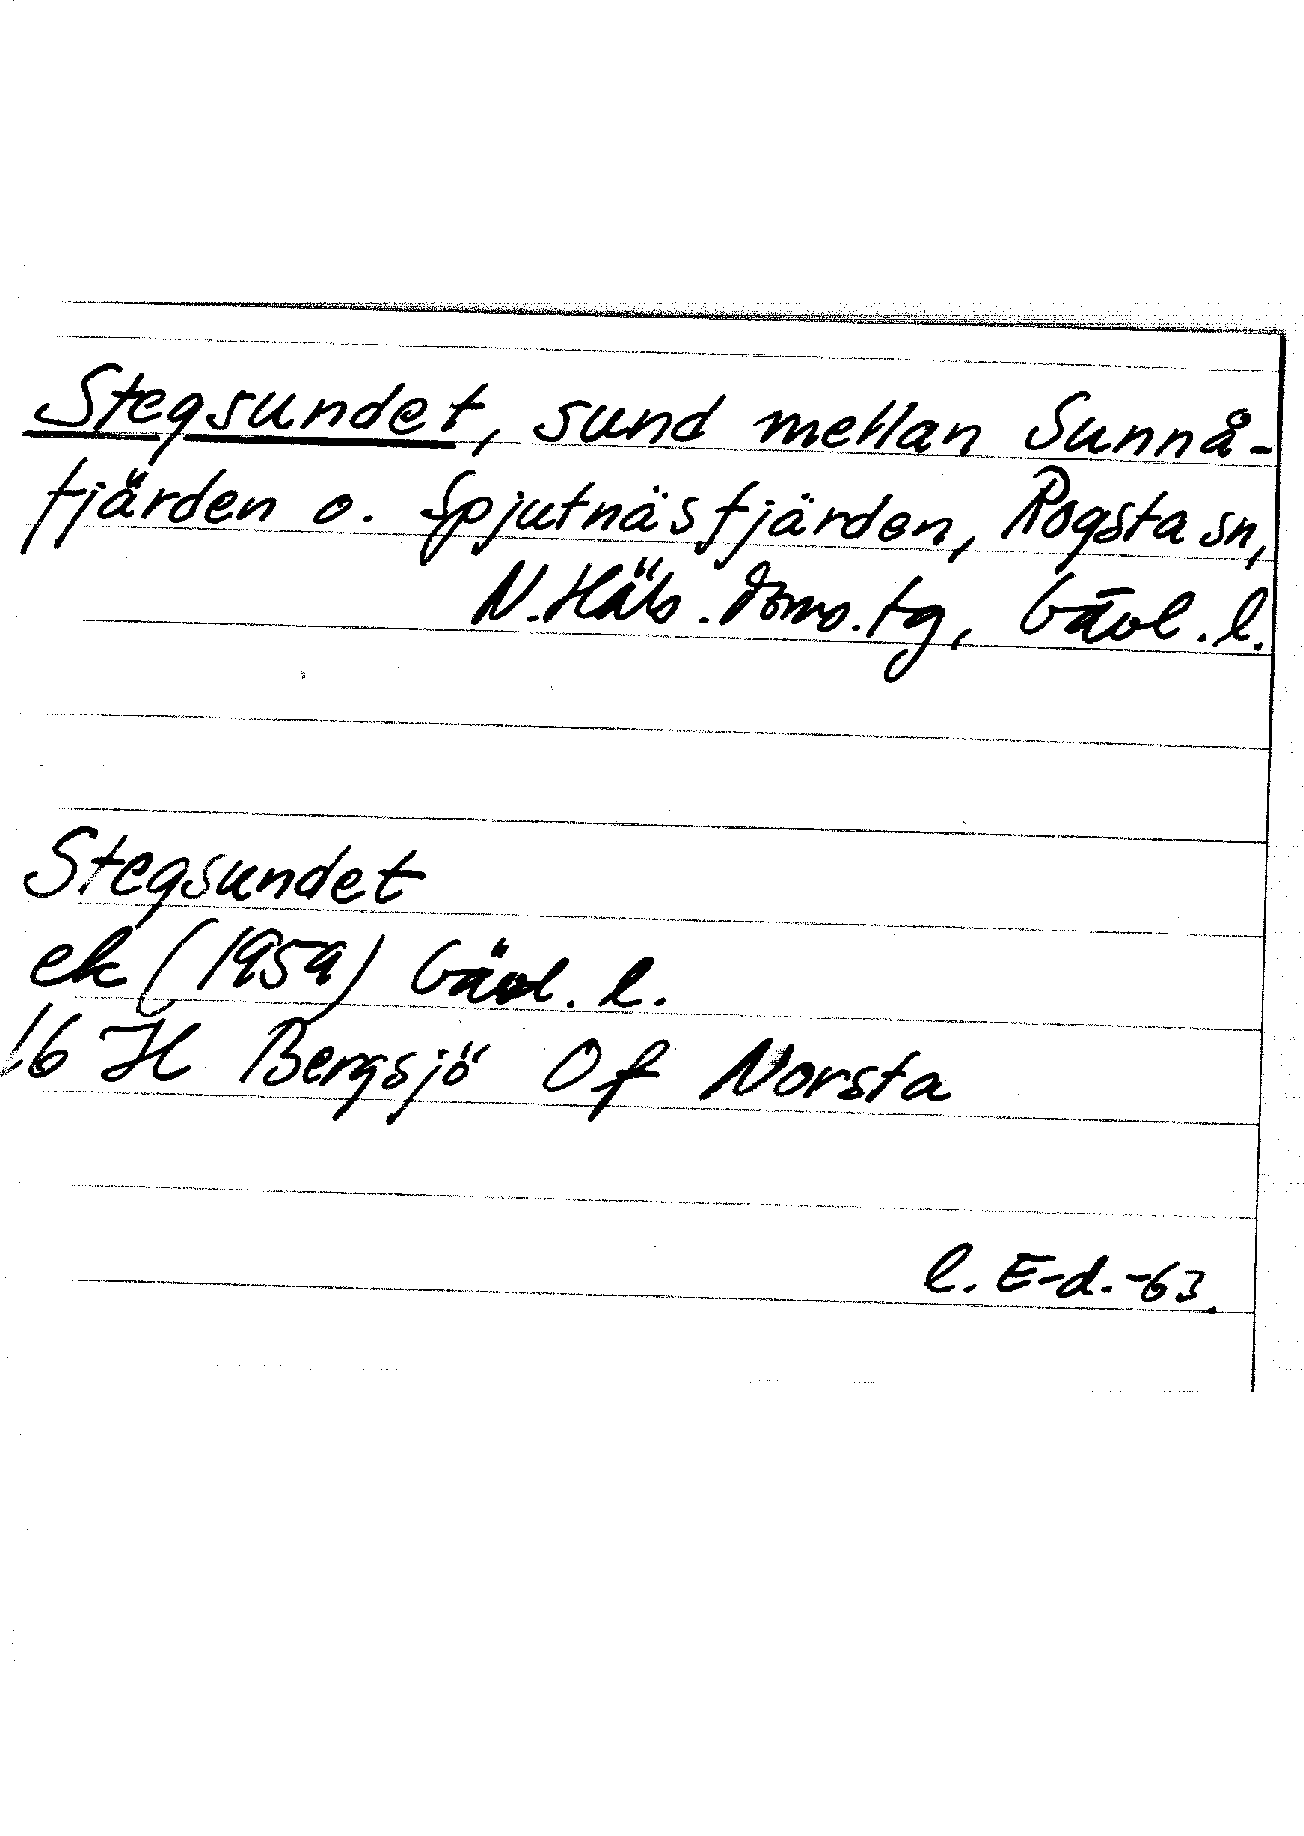 Stegsundet, sund mellan Sunnå-
fjärden o. Spjutnäsfjärden, Rogsta sn,
N. Häls. doms. tg, Gävl. l.
Stegsundet
ek (1959) Gävl. l.
16 H Bergsjö Of Norsta
l. E-d.-63.